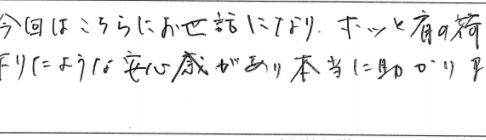 今回はこちらにお世話になり、ホッと肩の荷
下りたような安心感があり本当に助かりま